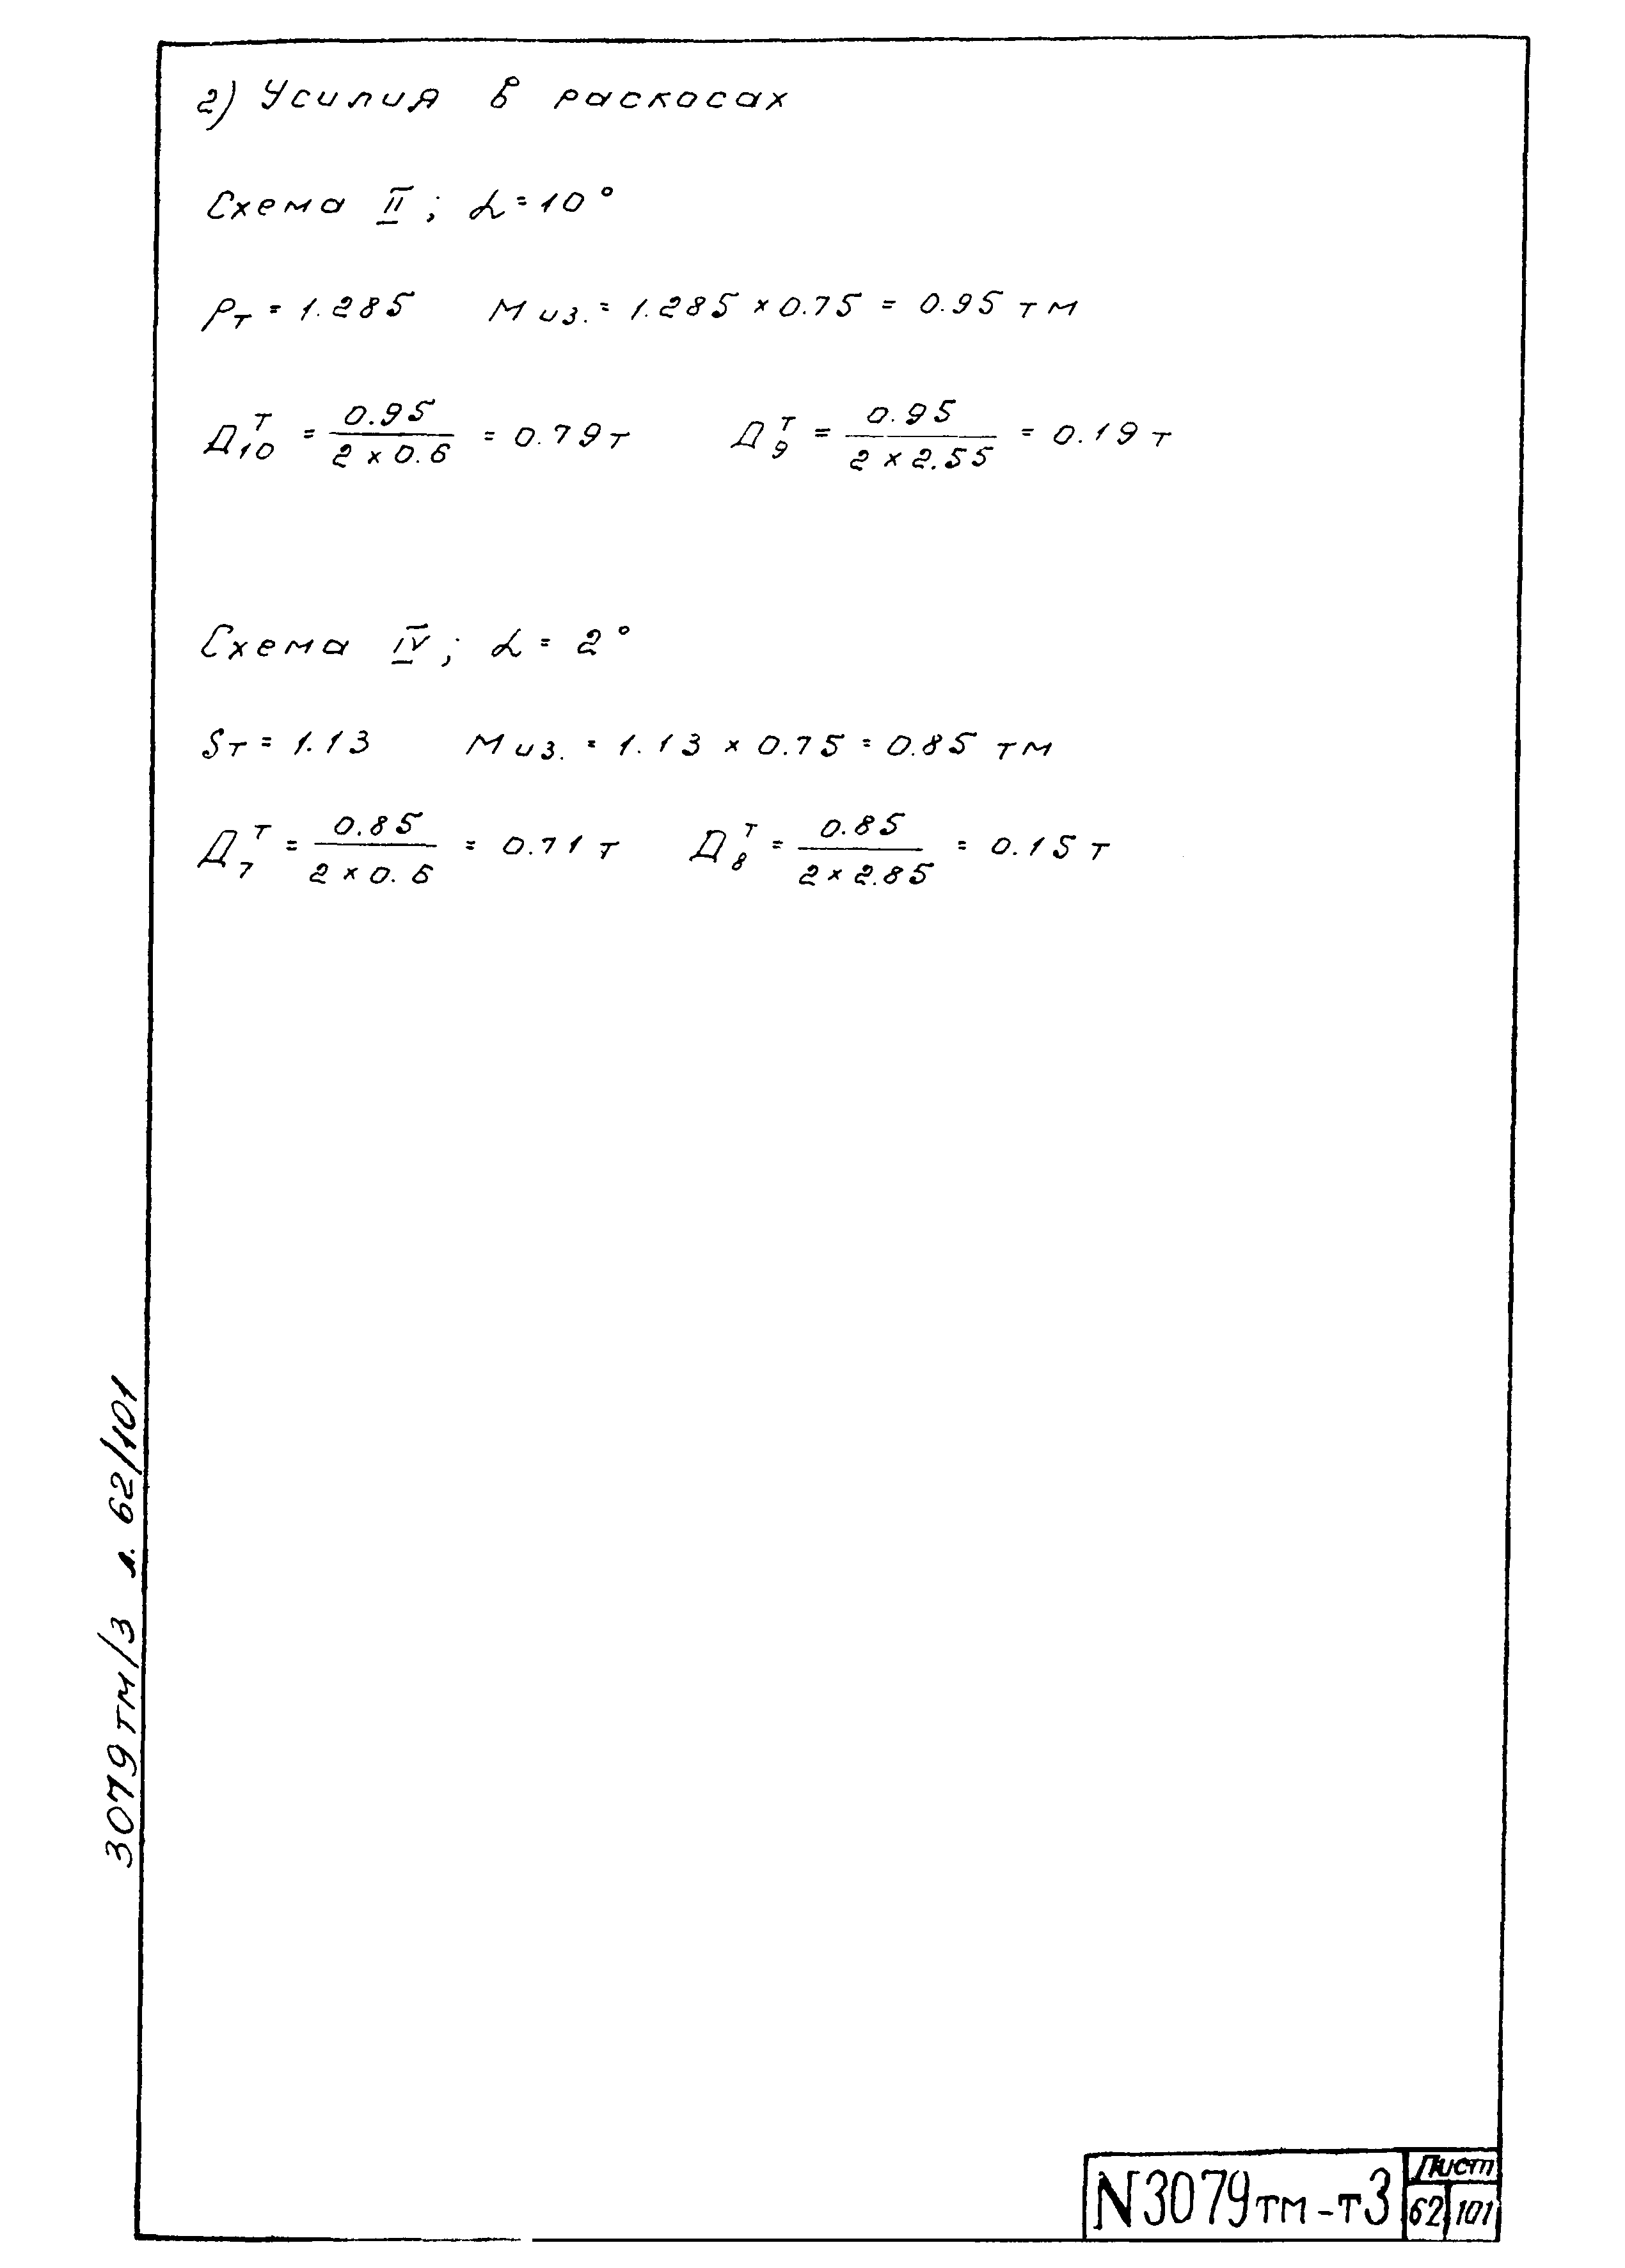 г) Усилия в раскосах
Схема II; α=10°
Pт = 1.285 Mиз. = 1.285 × 0.75 = 0.95 тм
Д₁₀ᵀ = 0.95 / 2 × 0.6 = 0.79 т Д₉ᵀ = 0.95 / 2 × 2.55 = 0.19 т
Схема IV; α = 2°
Sт = 1.13 Mиз. = 1.13 × 0.75 = 0.85 тм
Д₇ᵀ = 0.85 / 2 × 0.6 = 0.71 т Д₈ᵀ = 0.85 / 2 × 2.85 = 0.15 т
3079тм/3 л. 62/101
N3079тм-т3
Лист
62 101